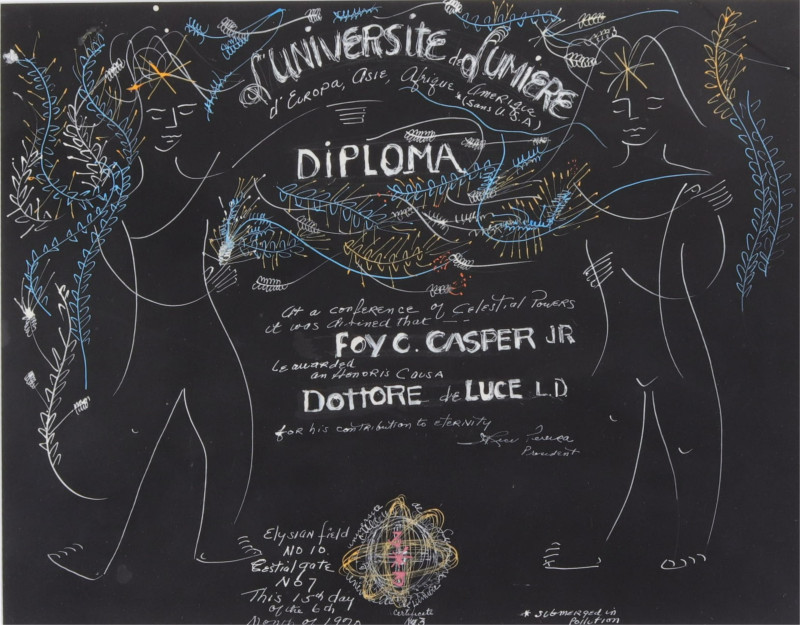 L'UNIVERSITE de LUMIÈRE
d'EUROPA, ASIE, Afrique & AMERIQUE
*(sans U.S.A)
DiPLOMA
At a conference of CELESTIAL POWERS
it was that
FOY C. CASPER JR
be awarded
an HONORIS CAUSA
DOTTORE de LUCE L.D
for his contribution to ETERNITY
Irene Pereira
President
Elysian field
NO 10.
gate
NO 7
This 15th day
of the 6th
Month of 1970
Certificate
No 3
* SUBMERGED in
Pollution